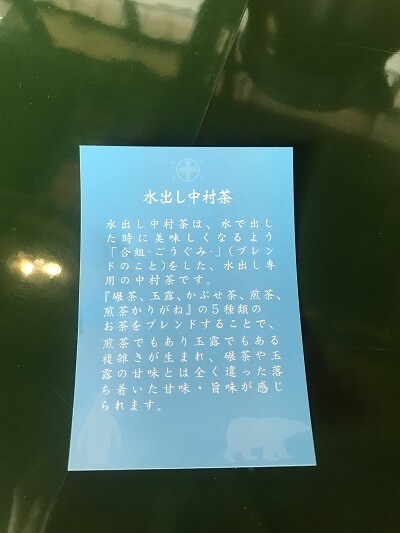 水出し中村茶
水出し中村茶は、水で出し
た時に美味しくなるよう
「合組-ごうぐみ-」(ブレン
ドのこと)をした、水出し専
用の中村茶です。
『碾茶、玉露、かぶせ茶、煎茶、
煎茶かりがね』の5種類の
お茶をブレンドすることで、
煎茶でもあり玉露でもある
複雑さが生まれ、碾茶や玉
露の甘味とは全く違った落
ち着いた甘味・旨味が感じ
られます。